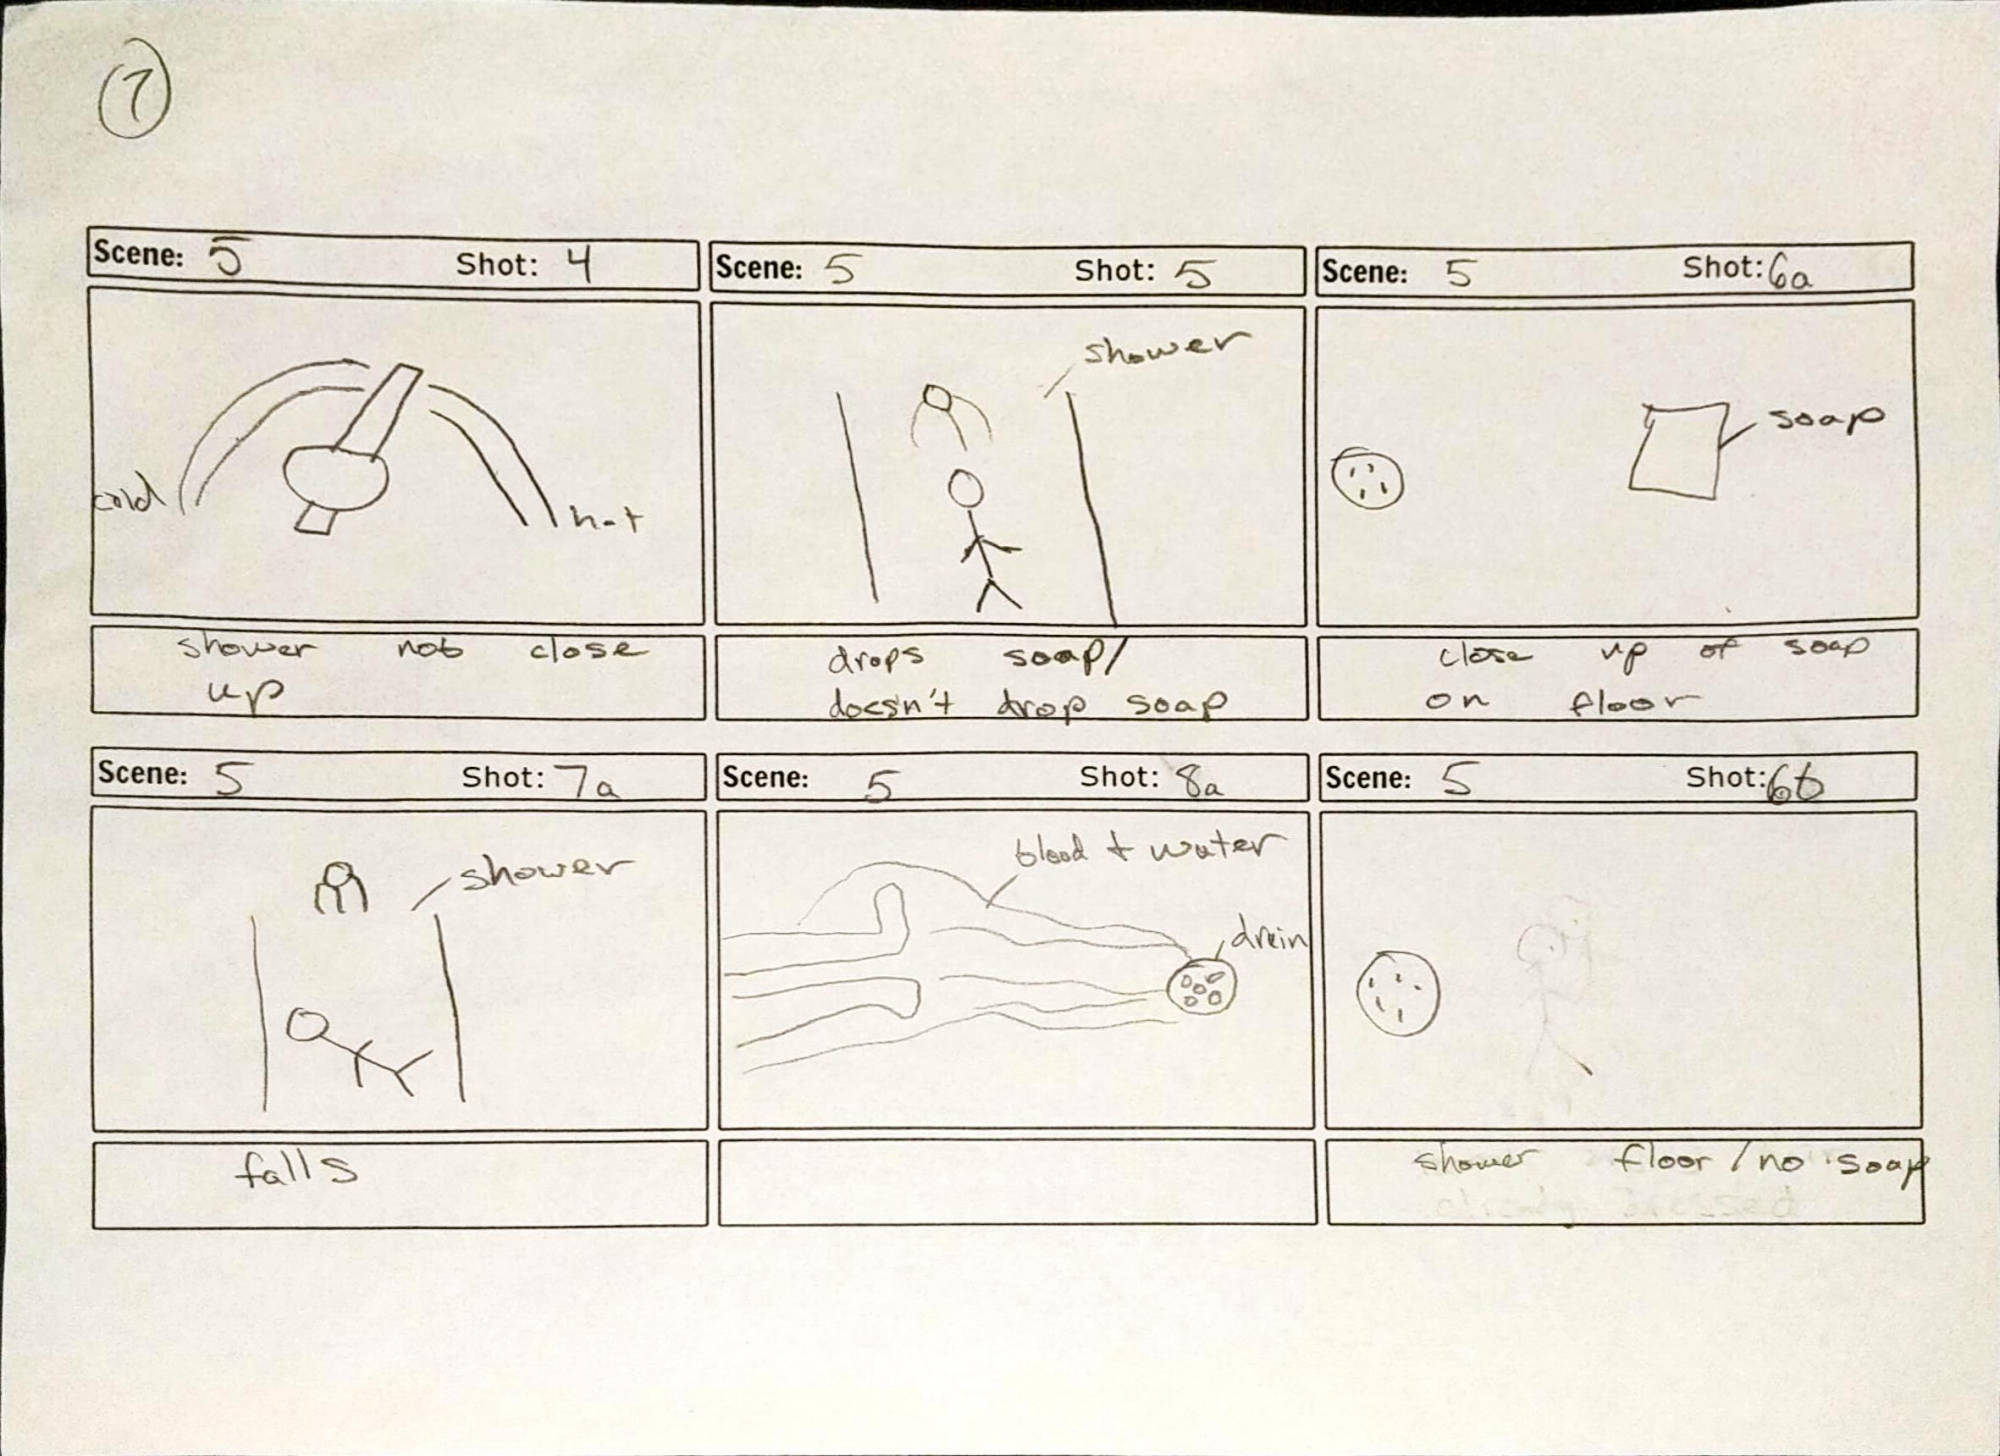 7
Scene: 5 Shot: 4
cold
hot
shower nob close
up
Scene: 5 Shot: 5
shower
drops soap/
doesn't drop soap
Scene: 5 Shot: 6a
soap
close up of soap
on floor
Scene: 5 Shot: 7a
shower
falls
Scene: 5 Shot: 8a
blood + water
drain
Scene: 5 Shot: 6b
shower floor/no soap